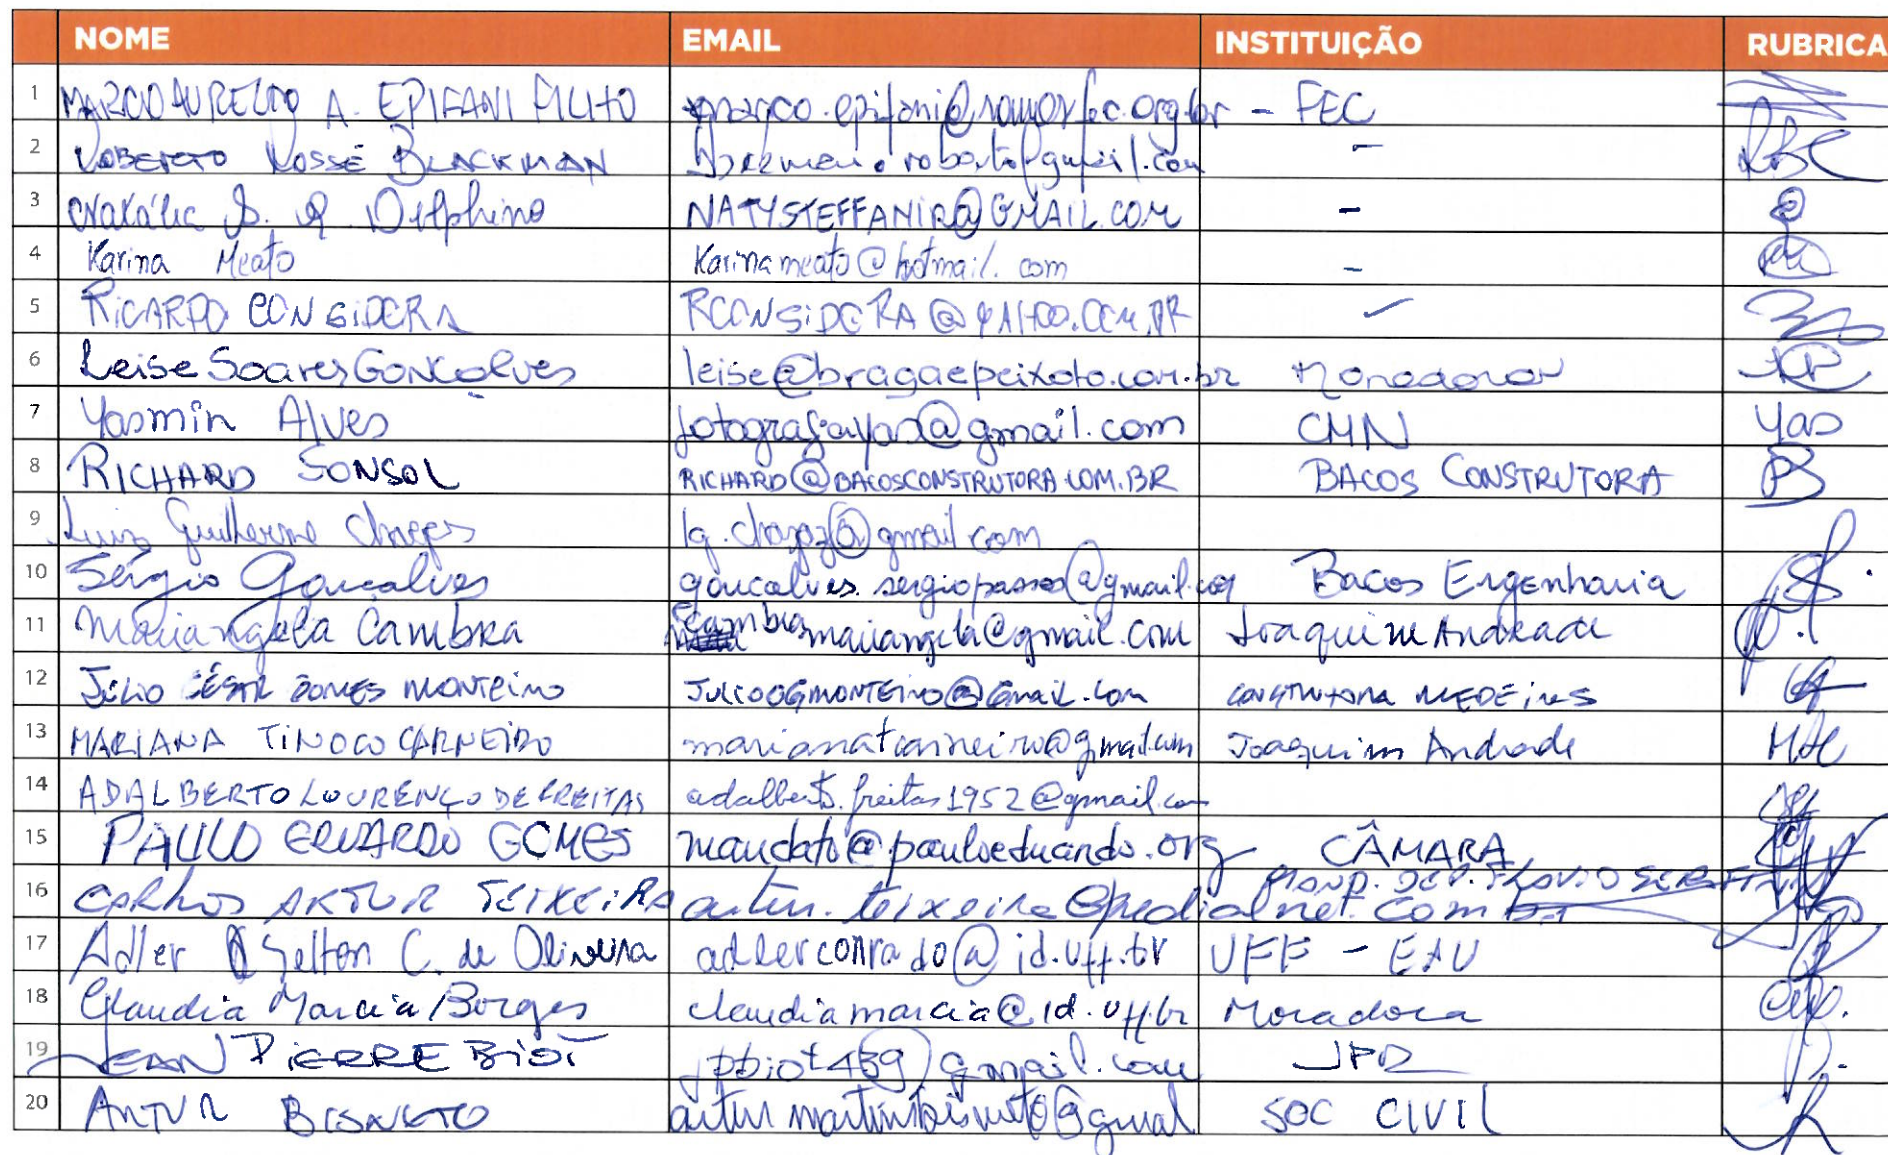 NOME EMAIL INSTITUIÇÃO RUBRICA
1 MARCO AURELIO A. EPIFANI FILHO - FEC
2 ROBERTO BLACKMAN - RBC
3 Natália S. Delphino NATYSTEFFANIR@GMAIL.COM -
4 Karina Meato Karinameato@hotmail.com -
5 RICARDO CONSIDERA RCONSIDERA@YAHOO.COM.BR
6 Leise Soares Goncalves leise@bragaepeixoto.com.br
7 Yasmin Alves fotografayas@gmail.com CMN Yas
8 RICHARD SONSOL RICHARD@BACOSCONSTRUTORA.COM.BR BACOS CONSTRUTORA
9 Luiz Guilherme Chagas
10 Sérgio Gonçalves goncalves.sergiopassos@gmail.com Bacos Engenharia
11 Mariangela Cambra cambramariangela@gmail.com Joaquim Andrade
12 JÚLIO CÉSAR GOMES MONTEIRO JULIOCGMONTEIRO@GMAIL.COM CONSTRUTORA
13 MARIANA TINOCO CARNEIRO marianatcarneiro@gmail.com Joaquim Andrade
14 ADALBERTO LOURENÇO DE FREITAS adalberto.freitas1952@gmail.com
15 PAULO EDUARDO GOMES mandato@pauloeduardo.org CÂMARA
MAND. DEP. FLAVIO SERAFINI
16 CARLOS ARTUR TEIXEIRA artur.teixeira@predialnet.com.br
17 Adler Selton C. de Oliveira adlerconrado@id.uff.br UFF - EAU
18 Claudia Marcia Borges claudiamarcia@id.uff.br Moradora
19 JEAN PIERRE BIOT jpbiot439@gmail.com
20 ARTUR BISNETO arturmartinsbisneto@gmail SOC CIVIL